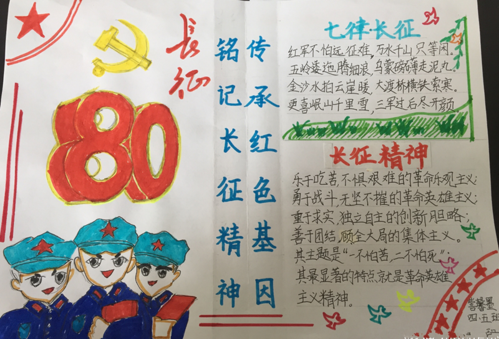 长征
80
传承红色基因
铭记长征精神
七律·长征
红军不怕远征难，万水千山只等闲。
五岭逶迤腾细浪，乌蒙磅礴走泥丸。
金沙水拍云崖暖，大渡桥横铁索寒。
更喜岷山千里雪，三军过后尽开颜
长征精神
乐于吃苦，不惧艰难的革命乐观主义；
勇于战斗，无坚不摧的革命英雄主义；
重于求实，独立自主的创新胆略；
善于团结，顾全大局的集体主义。
其主题是“一不怕苦，二不怕死”；
其最显著的特点就是革命英雄
主义精神。
四.五